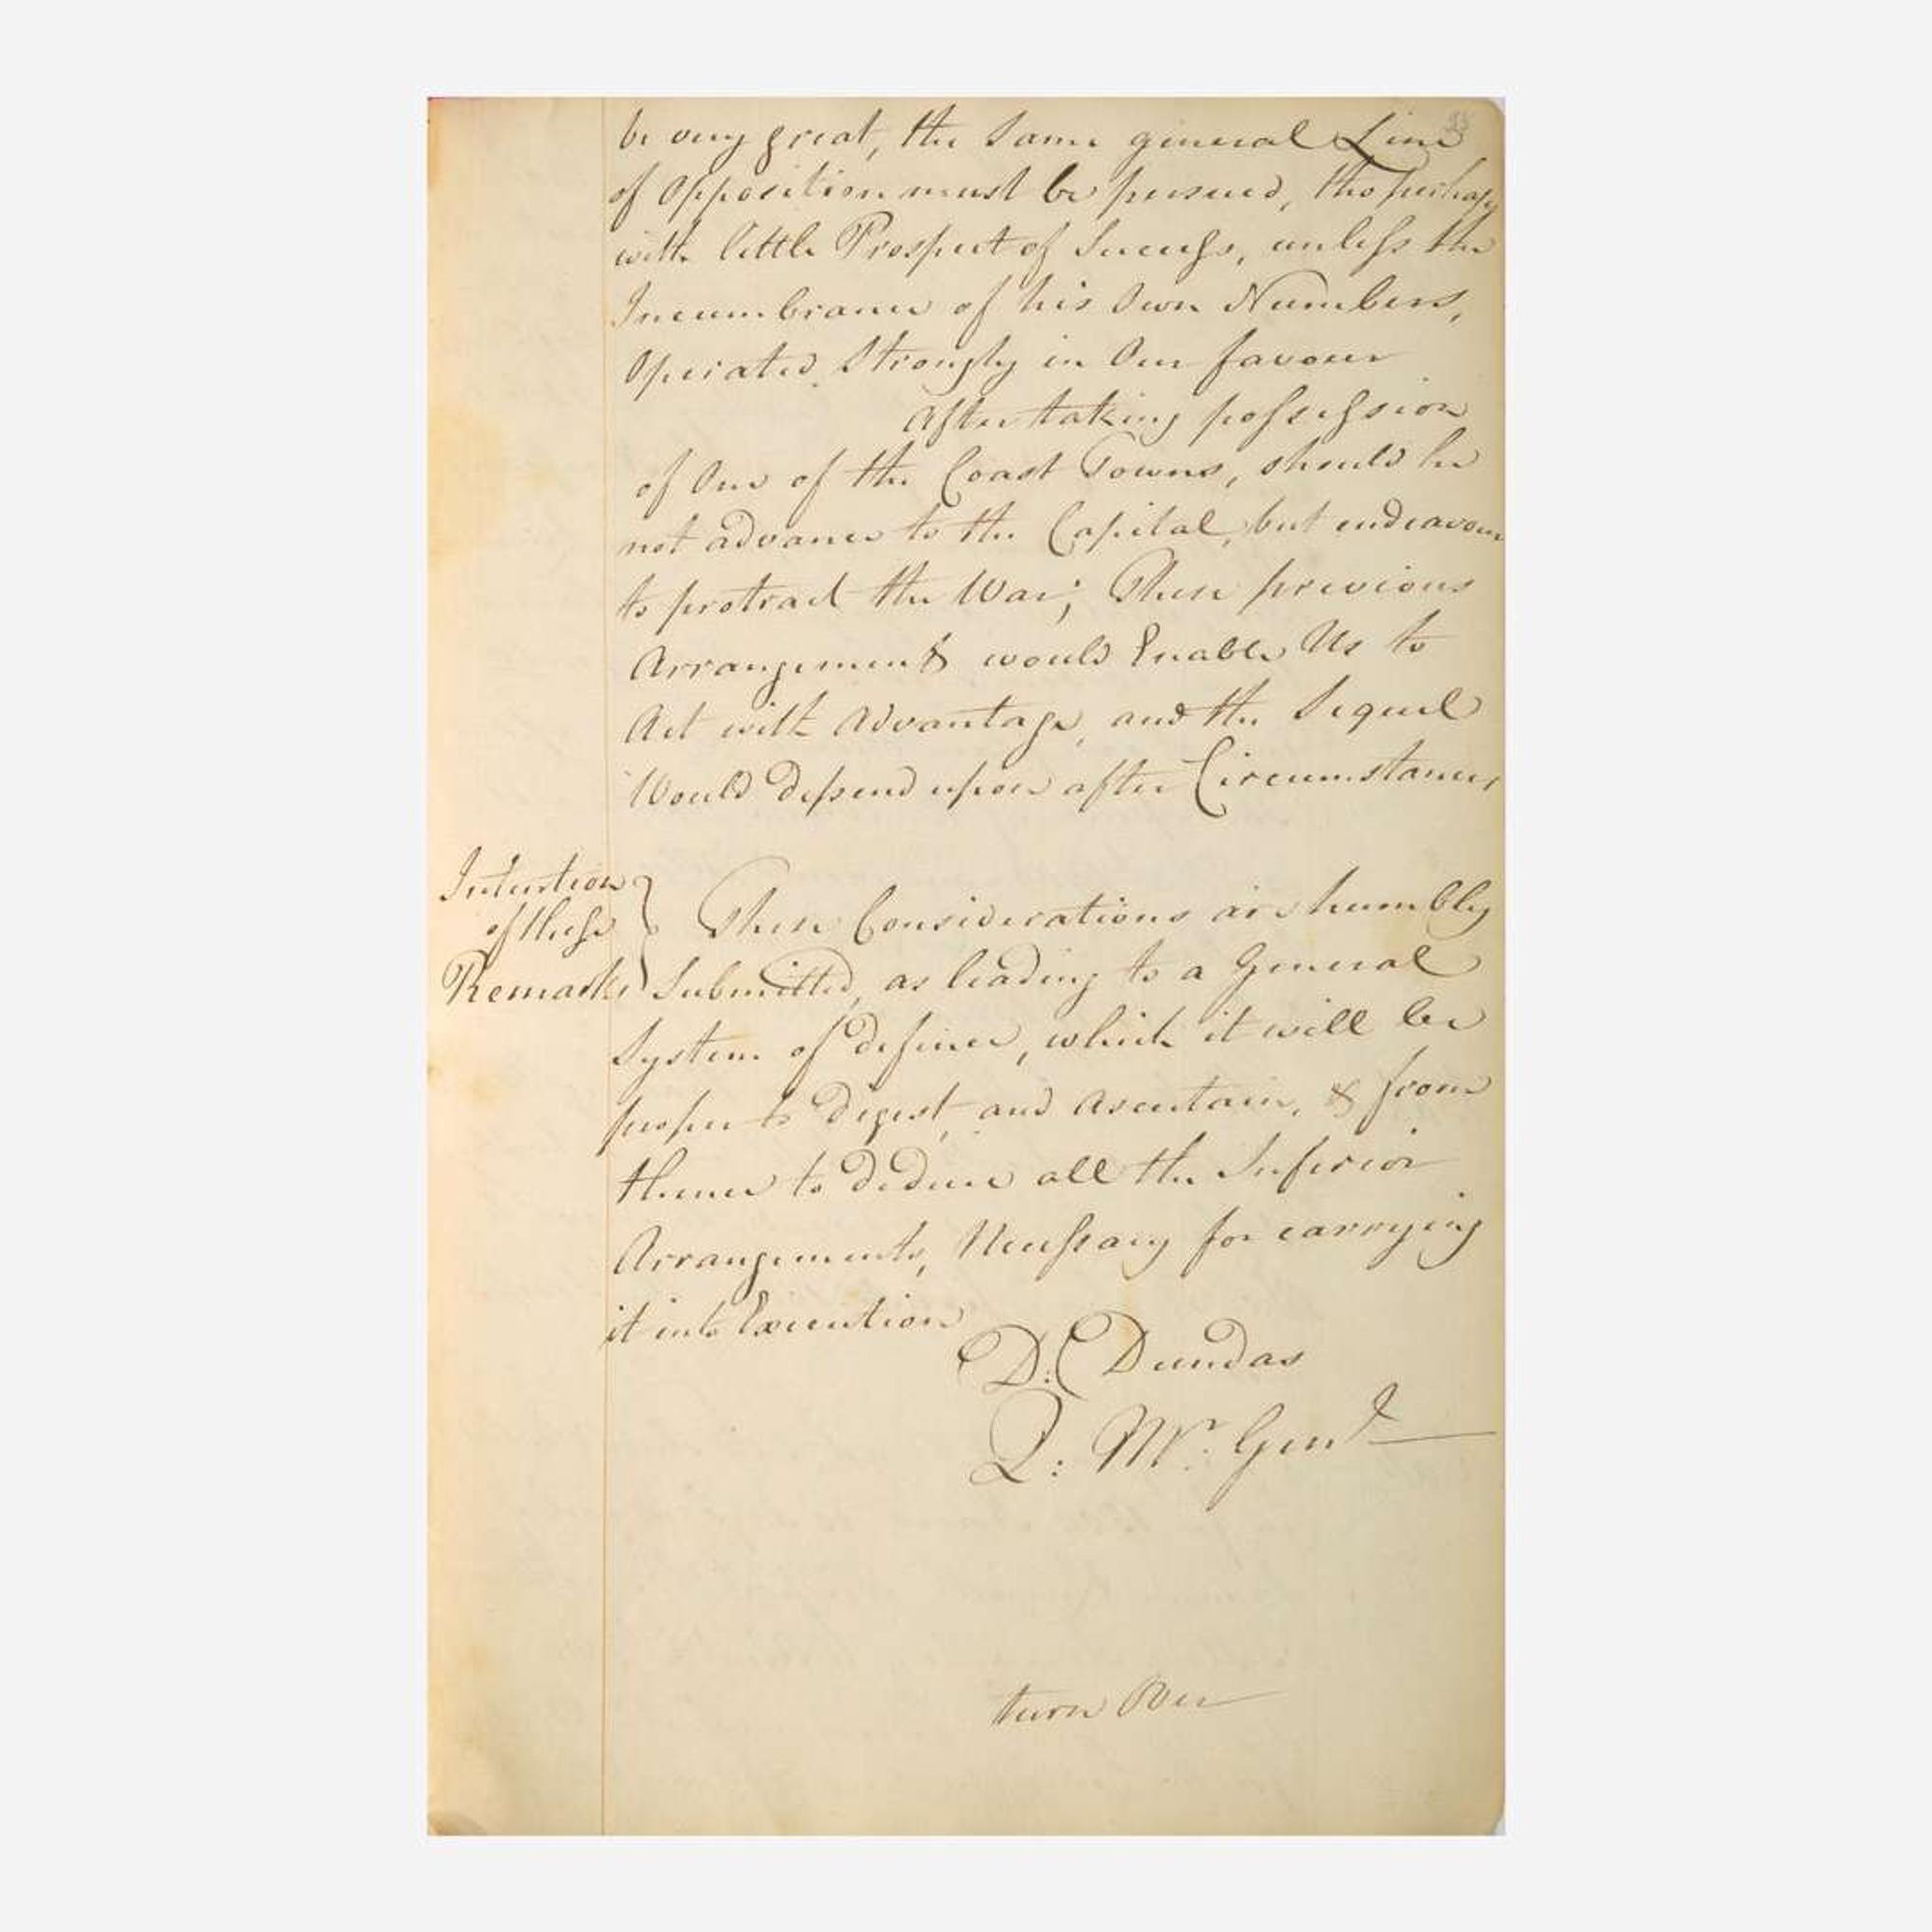 be very great, the Same general Line
of Opposition must be pursued, tho perhaps
with little Prospect of Success, unless the
Incumbrance of his Own Numbers,
Operated Strongly in Our favour
After taking possession
of One of the Coast Towns, should he
not advance to the Capital, but endeavour
to protract the War; These previous
Arrangements would Enable Us to
Act with Advantage, and the Sequel
Would depend upon after Circumstances,
Intention
of these
Remarks
These Considerations are humbly
Submitted, as leading to a General
System of defence, which it will be
proper to digest, and Ascertain, & from
thence to deduce all the Inferior
Arrangements, Necessary for carrying
it into Execution
D: Dundas
Q: Mr. Genl
turn Over